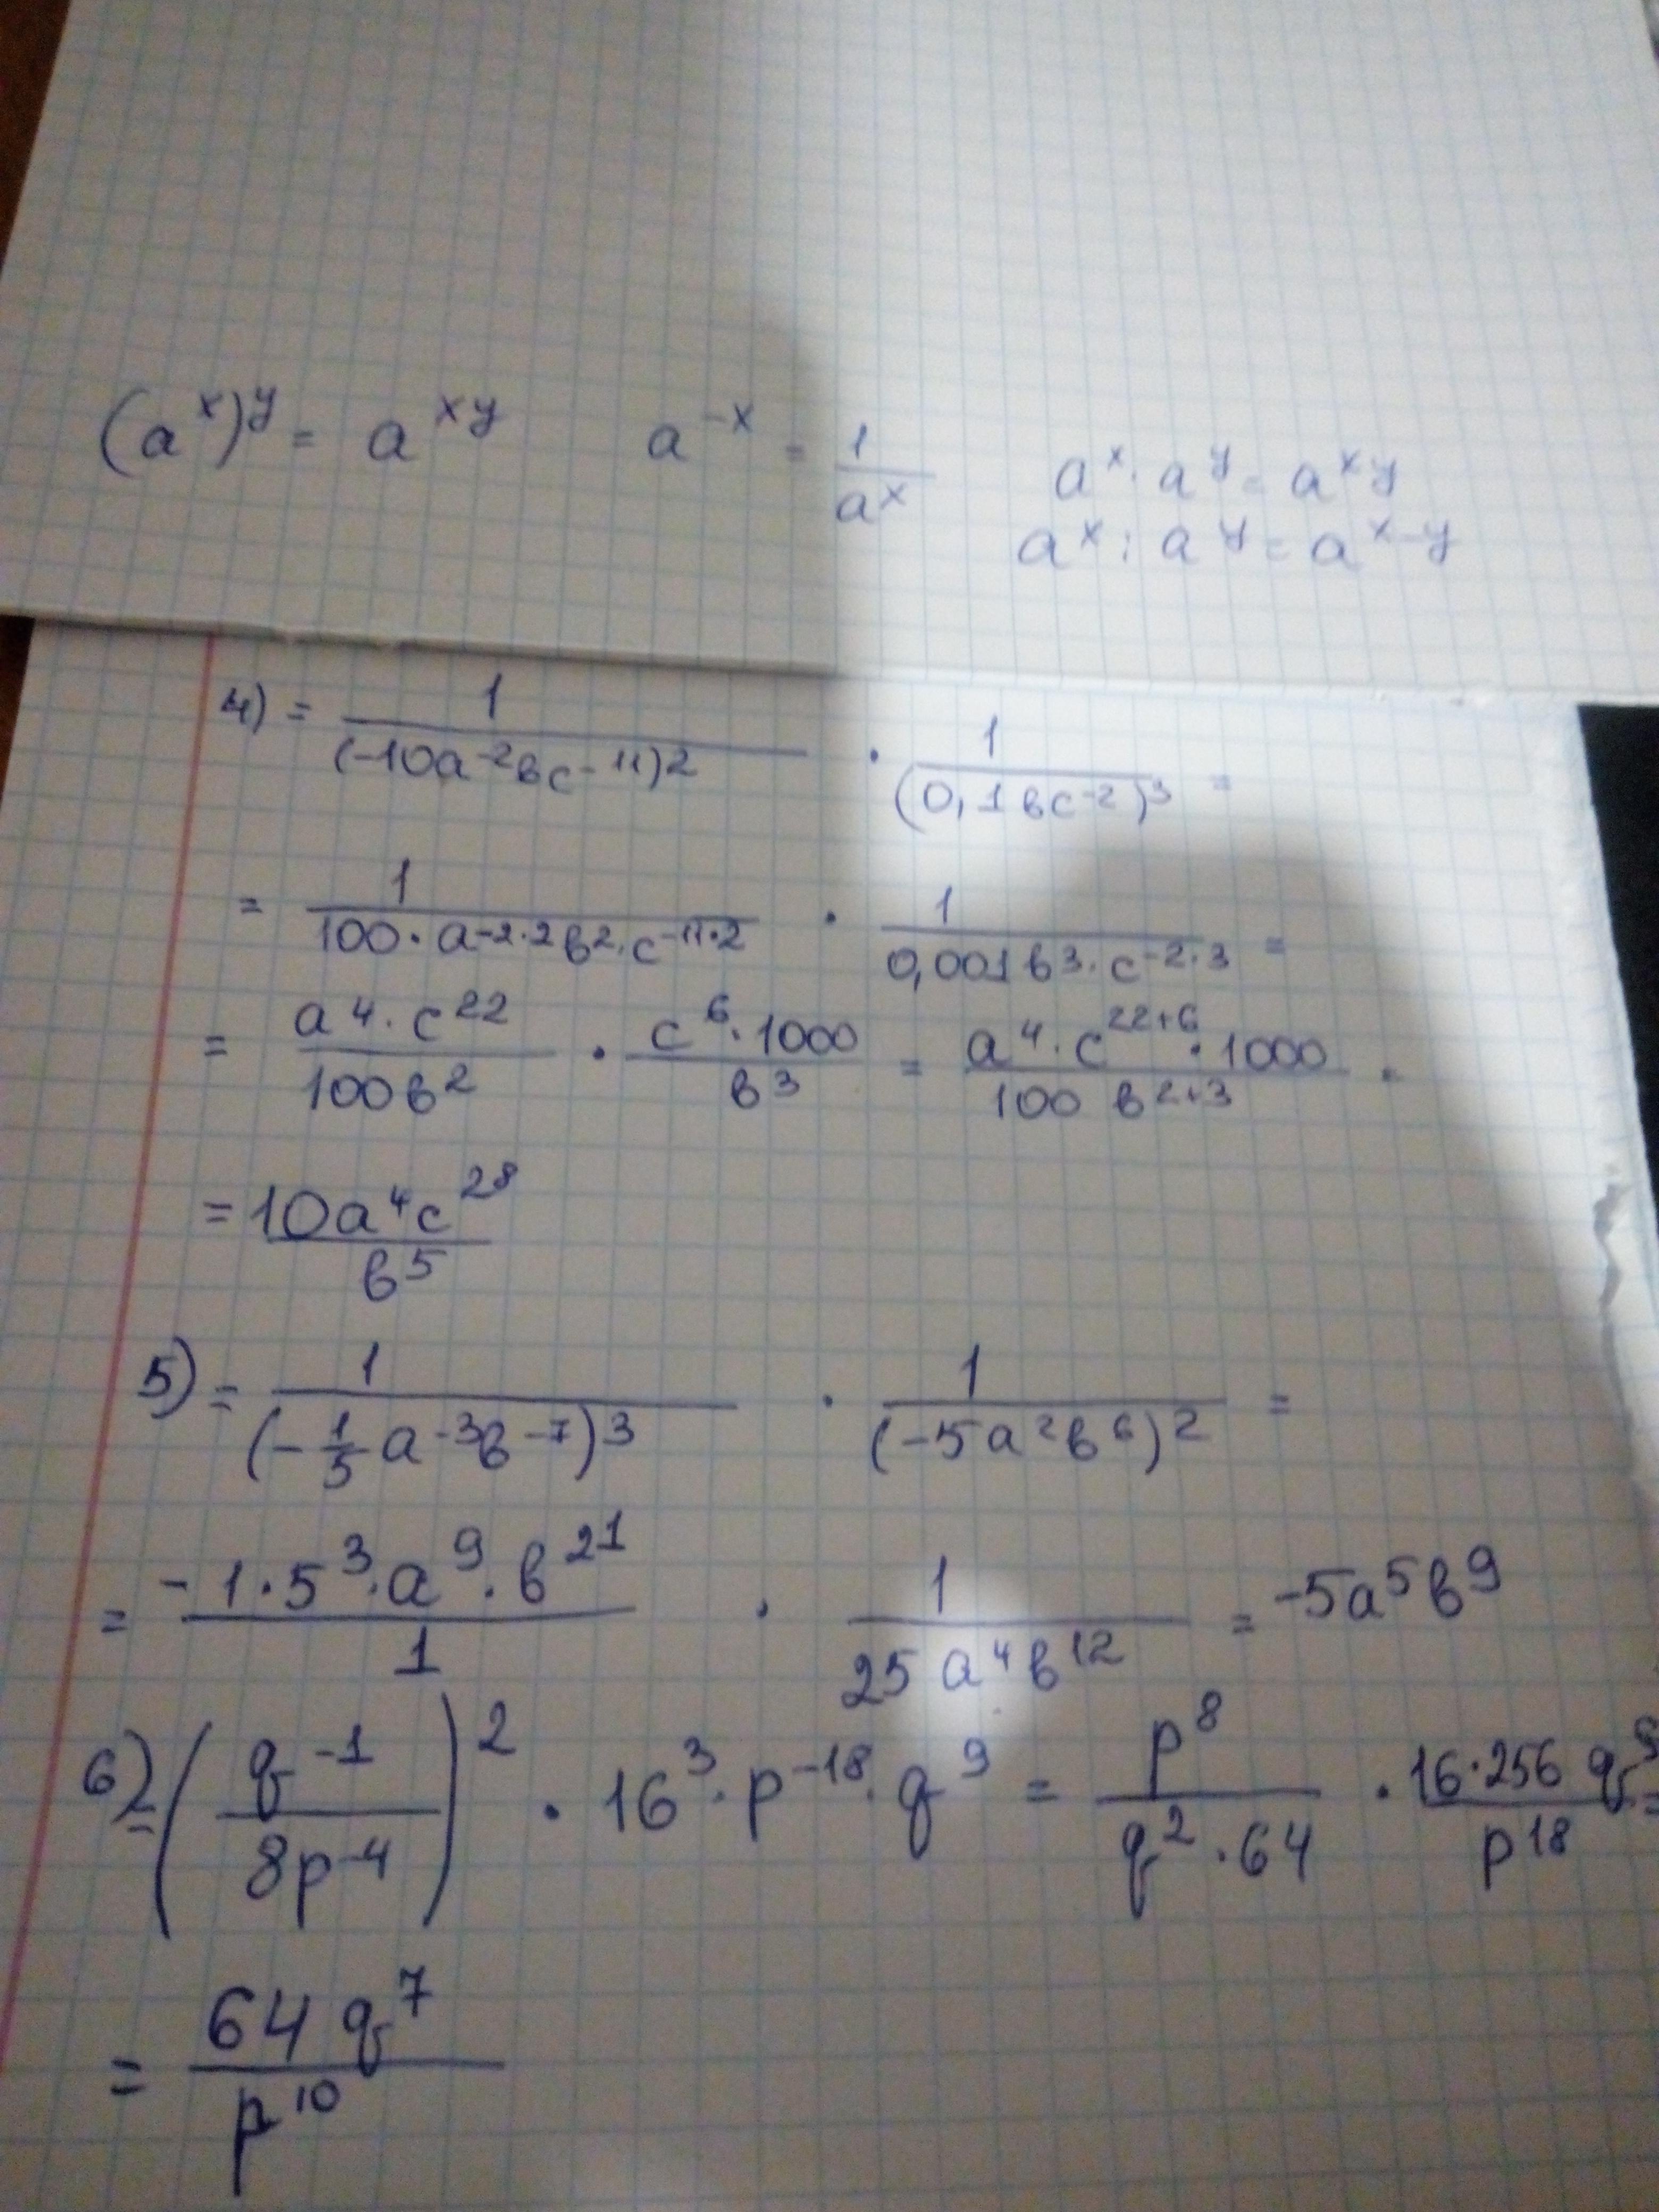 (a^x)^y = a^{xy}    a^{-x} = \frac{1}{a^x}    a^x · a^y = a^{xy}
a^x : a^y = a^{x-y}
4) = \frac{1}{(-10a^{-2}вc^{-11})^2} · \frac{1}{(0,1вc^{-2})^3} =
= \frac{1}{100·a^{-2·2}в^2·c^{-11·2}} · \frac{1}{0,001в^3·c^{-2·3}} =
= \frac{a^4·c^{22}}{100в^2} · \frac{c^6·1000}{в^3} = \frac{a^4·c^{22+6}·1000}{100 в^{2+3}} =
= \frac{10a^4c^{28}}{в^5}
5) = \frac{1}{(-\frac{1}{5}a^{-3}в^{-7})^3} · \frac{1}{(-5a^2в^6)^2} =
= \frac{-1·5^3·a^9·в^{21}}{1} · \frac{1}{25a^4в^{12}} = -5a^5в^9
6) = (\frac{q^{-1}}{8p^{-4}})^2 · 16^3·p^{-18}·q^9 = \frac{p^8}{q^2·64} · \frac{16·256 q^9}{p^{18}} =
= \frac{64 q^7}{p^{10}}